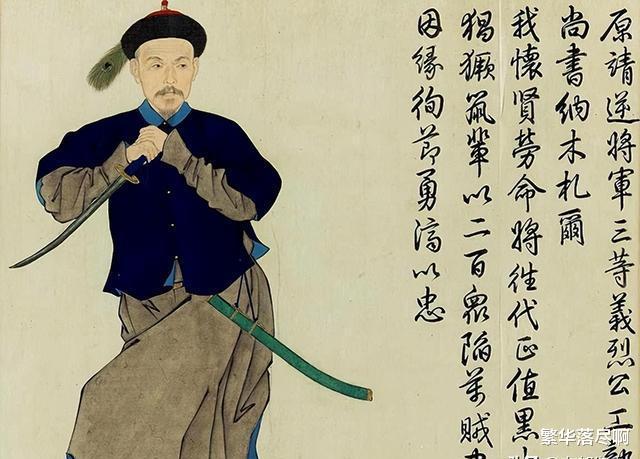 原靖逆將軍三等義烈公工部
尚書納木札爾
我懷賢勞命將往代正值黑
猖獗鼠輩以二百眾陷萬賊
因緣徇節勇濟以忠
繁华落尽啊